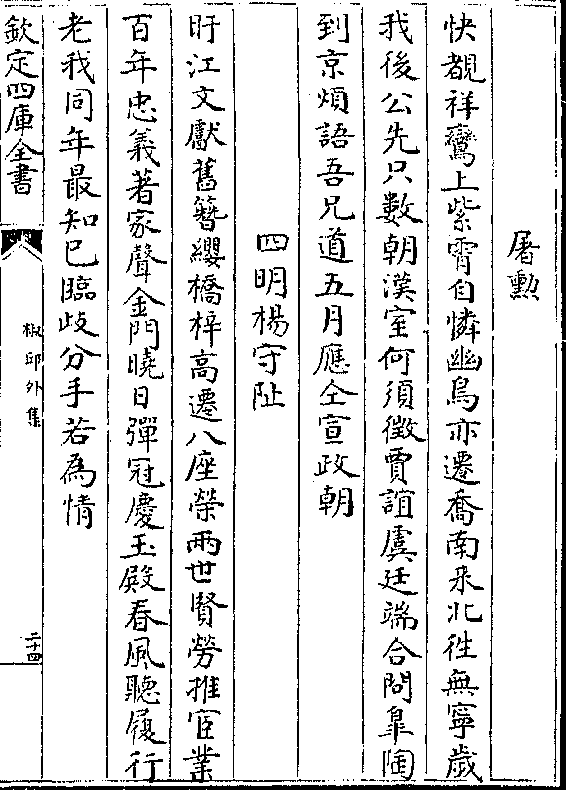 屠勲
快覩祥鸞上紫霄自憐幽鳥亦遷喬南来北徃無寧歲
我後公先只數朝漢室何須徴賈誼虞廷端合問臯陶
到京煩語吾兄道五月應仝宣政朝
四明楊守阯
盱江文獻舊簪纓橋梓高遷八座榮兩世賢勞推宦業
百年忠義著家聲金門曉日彈冠慶玉殿春風聽履行
老我同年最知已臨歧分手若為情
欽定四庫全書
椒邱外集
二十四